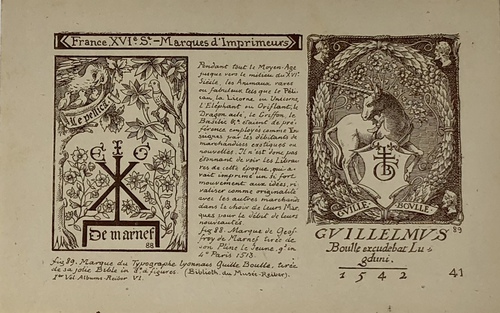 France, XVIe St. - Marques d'Imprimeurs
Le pelican
E I G
De marnef
88
Pendant tout le Moyen-Age
jusque vers le milieu du XVIe
Siècle, les Animaux rares
ou fabuleux tels que le Péli-
can, la Licorne ou Unicorne,
l'Eléphant ou Oriflant, le
Dragon ailé, le Griffon, le
Basilic &c. étaient de pré-
férence employés comme En-
seignes par les débitants de
marchandises exotiques ou
nouvelles. Il n'est donc pas
étonnant de voir les Librai-
res de cette époque, qui a-
vait imprimé un si fort
mouvement aux idées, ri-
valiser comme originalité
avec les autres marchands
dans le choix de leurs Mar-
ques pour le débit de leurs
nouveautés.
fig 88. Marque de Geof-
froy de Marnef tirée de
son Pline le Jeune, gd in
4° Paris 1518.
fig 89. Marque du Typographe lyonnais Guille Boulle, tirée
de sa jolie Bible in 8° à figures. (Biblioth. du Musée-Reiber).
1er Vol. Albums-Reiber VI.
GVILLE BOVLLE
GVILLELMVS
89
Boulle excudebat Lu-
gduni.
1542
41